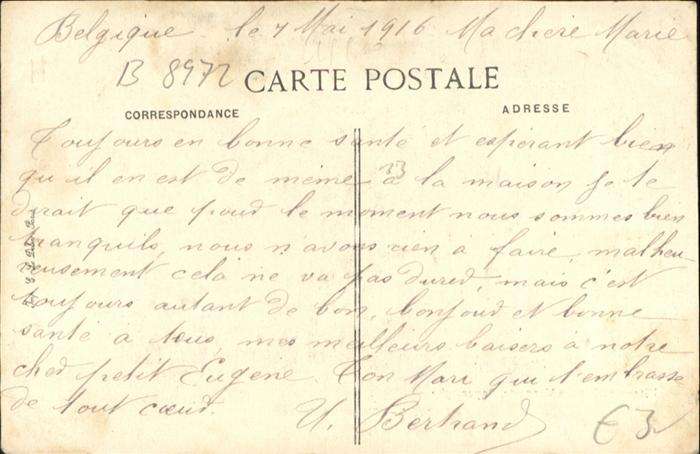 Belgique le 7 Mai 1916 Ma chere Marie
B 8972
CARTE POSTALE
CORRESPONDANCE ADRESSE
Toujours en bonne santé et espérant bien
qu'il en est de même à la maison je te
dirait que pour le moment nous sommes bien
tranquils, nous n'avons rien a faire, malheu-
reusement cela ne va pas durer, mais c'est
toujours autant de bon, bonjour et bonne
santé a tous, mes meilleurs baisers à notre
cher petit Eugene. Ton Mari qui t'embrasse
de tout cœur. Bertrand
33
£3